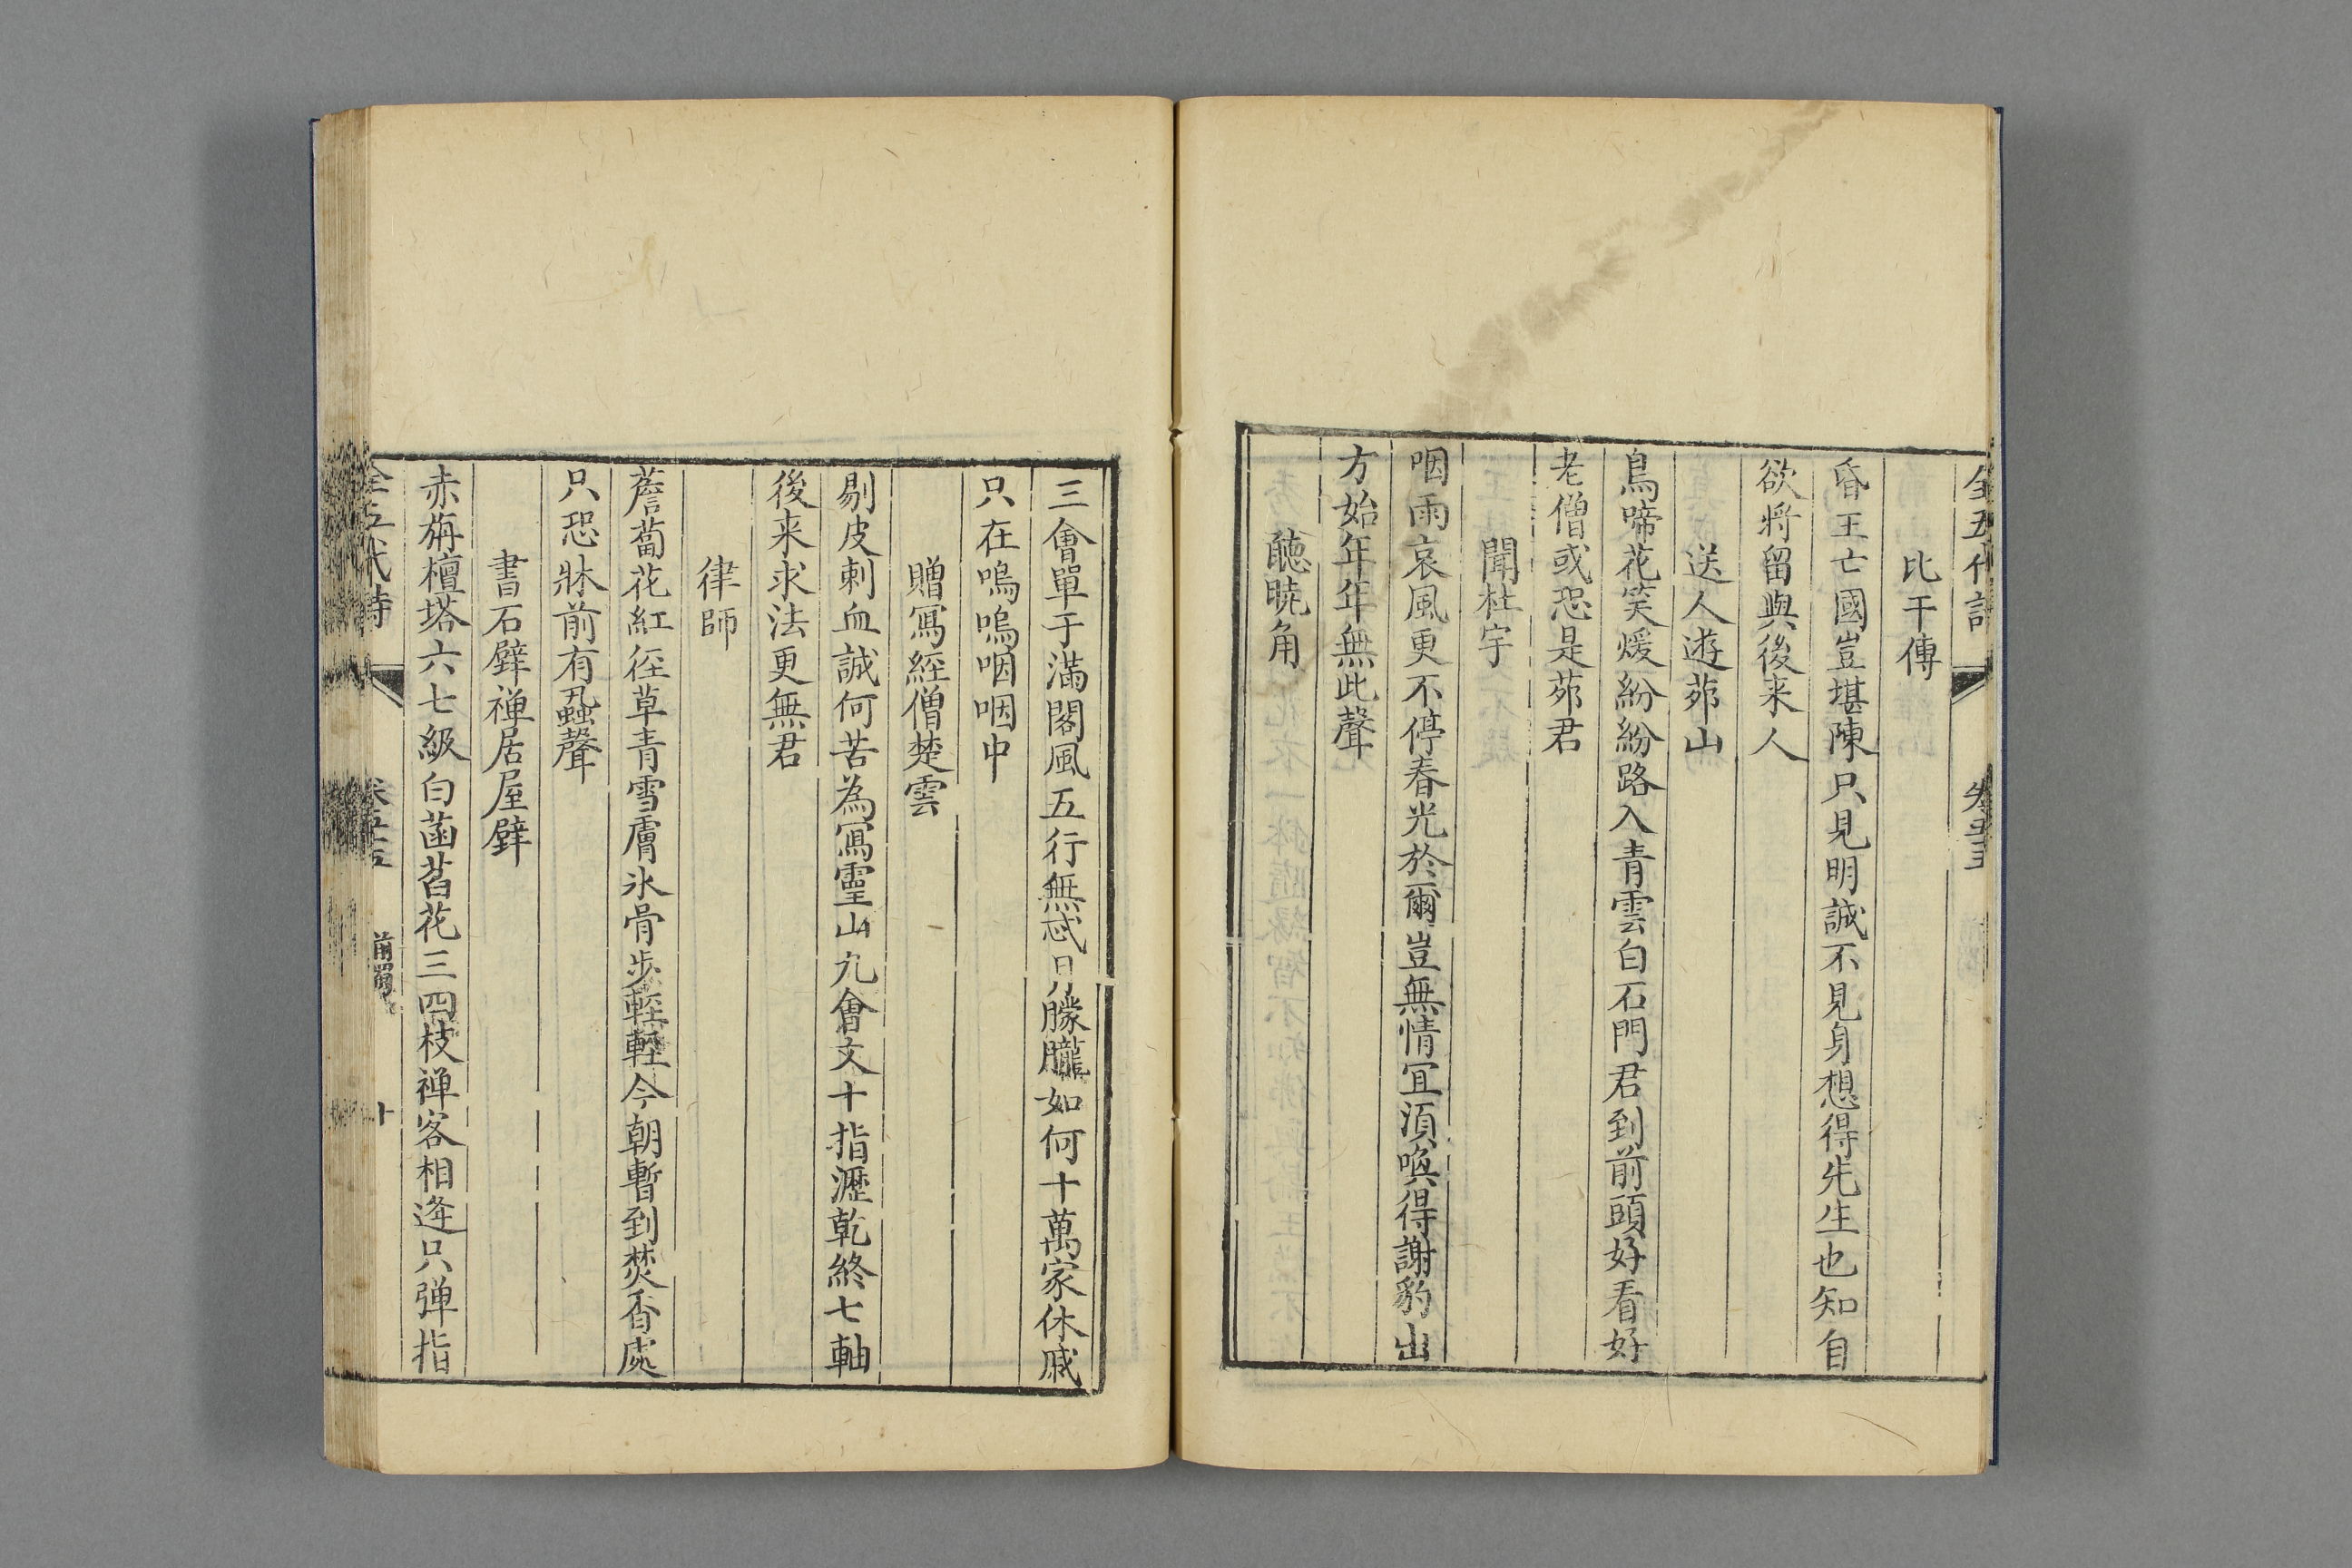 全五代詩
卷五十五
比干傳
昏王亡國豈堪陳只見明誠不見身想得先生也知自
欲將留與後来人
送人遊茆山
鳥啼花笑煖紛紛路入青雲白石門君到前頭好看好
老僧或恐是茆君
聞杜宇
咽雨哀風更不停春光於爾豈無情冝湏喚得謝豹出
方始年年無此聲
聽曉角
三會單于滿閣風五行無忒月朦朧如何十萬家休戚
只在嗚嗚咽咽中
贈寫經僧楚雲
剔皮刺血誠何苦為寫靈山九會文十指瀝乾終七軸
後来求法更無君
律師
薝蔔花紅徑草青雪膚氷骨步輕輕今朝暫到焚香處
只恐牀前有虱聲
書石壁禅居屋壁
赤旃檀塔六七級白菡萏花三四枝禅客相逢只弹指
全五代詩
卷五十五
前蜀
十